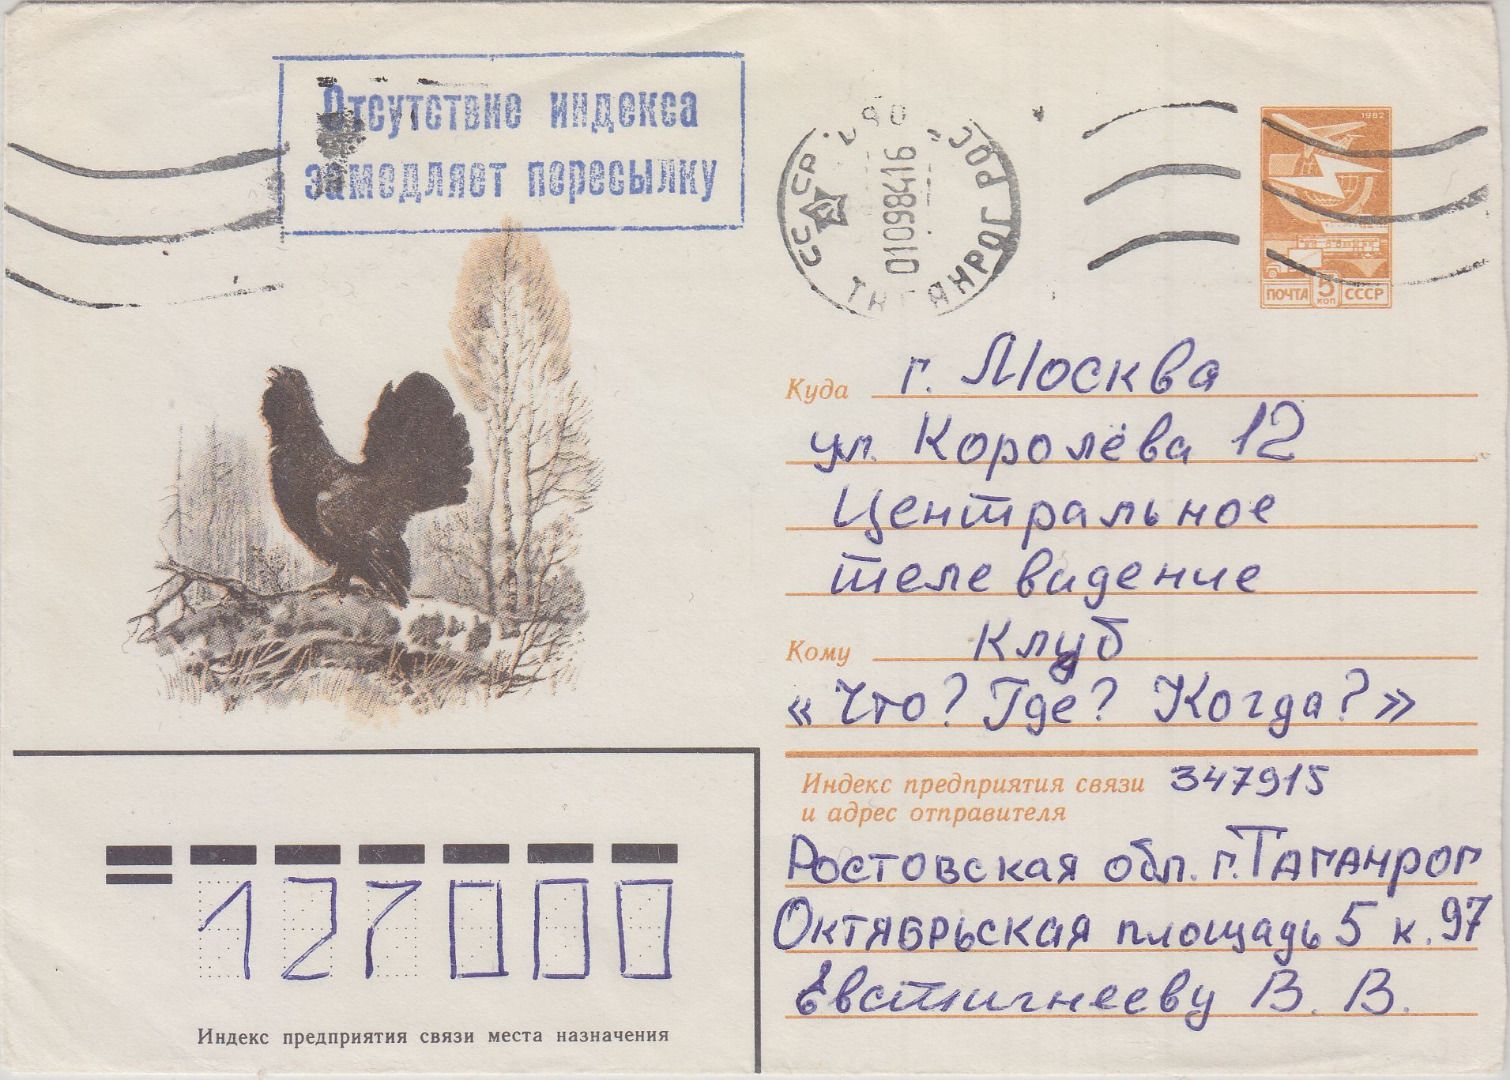 Отсутствие индекса
замедляет пересылку
СССР
01098416
ТАГАНРОГ РОС
1982
ПОЧТА 5 КОП СССР
Куда г. Москва
ул. Королёва 12
Центральное
телевидение
Кому Клуб
«Что? Где? Когда?»
Индекс предприятия связи 347915
и адрес отправителя
Ростовская обл. г. Таганрог
Октябрьская площадь 5 к. 97
Евстигнееву В. В.
127000
Индекс предприятия связи места назначения